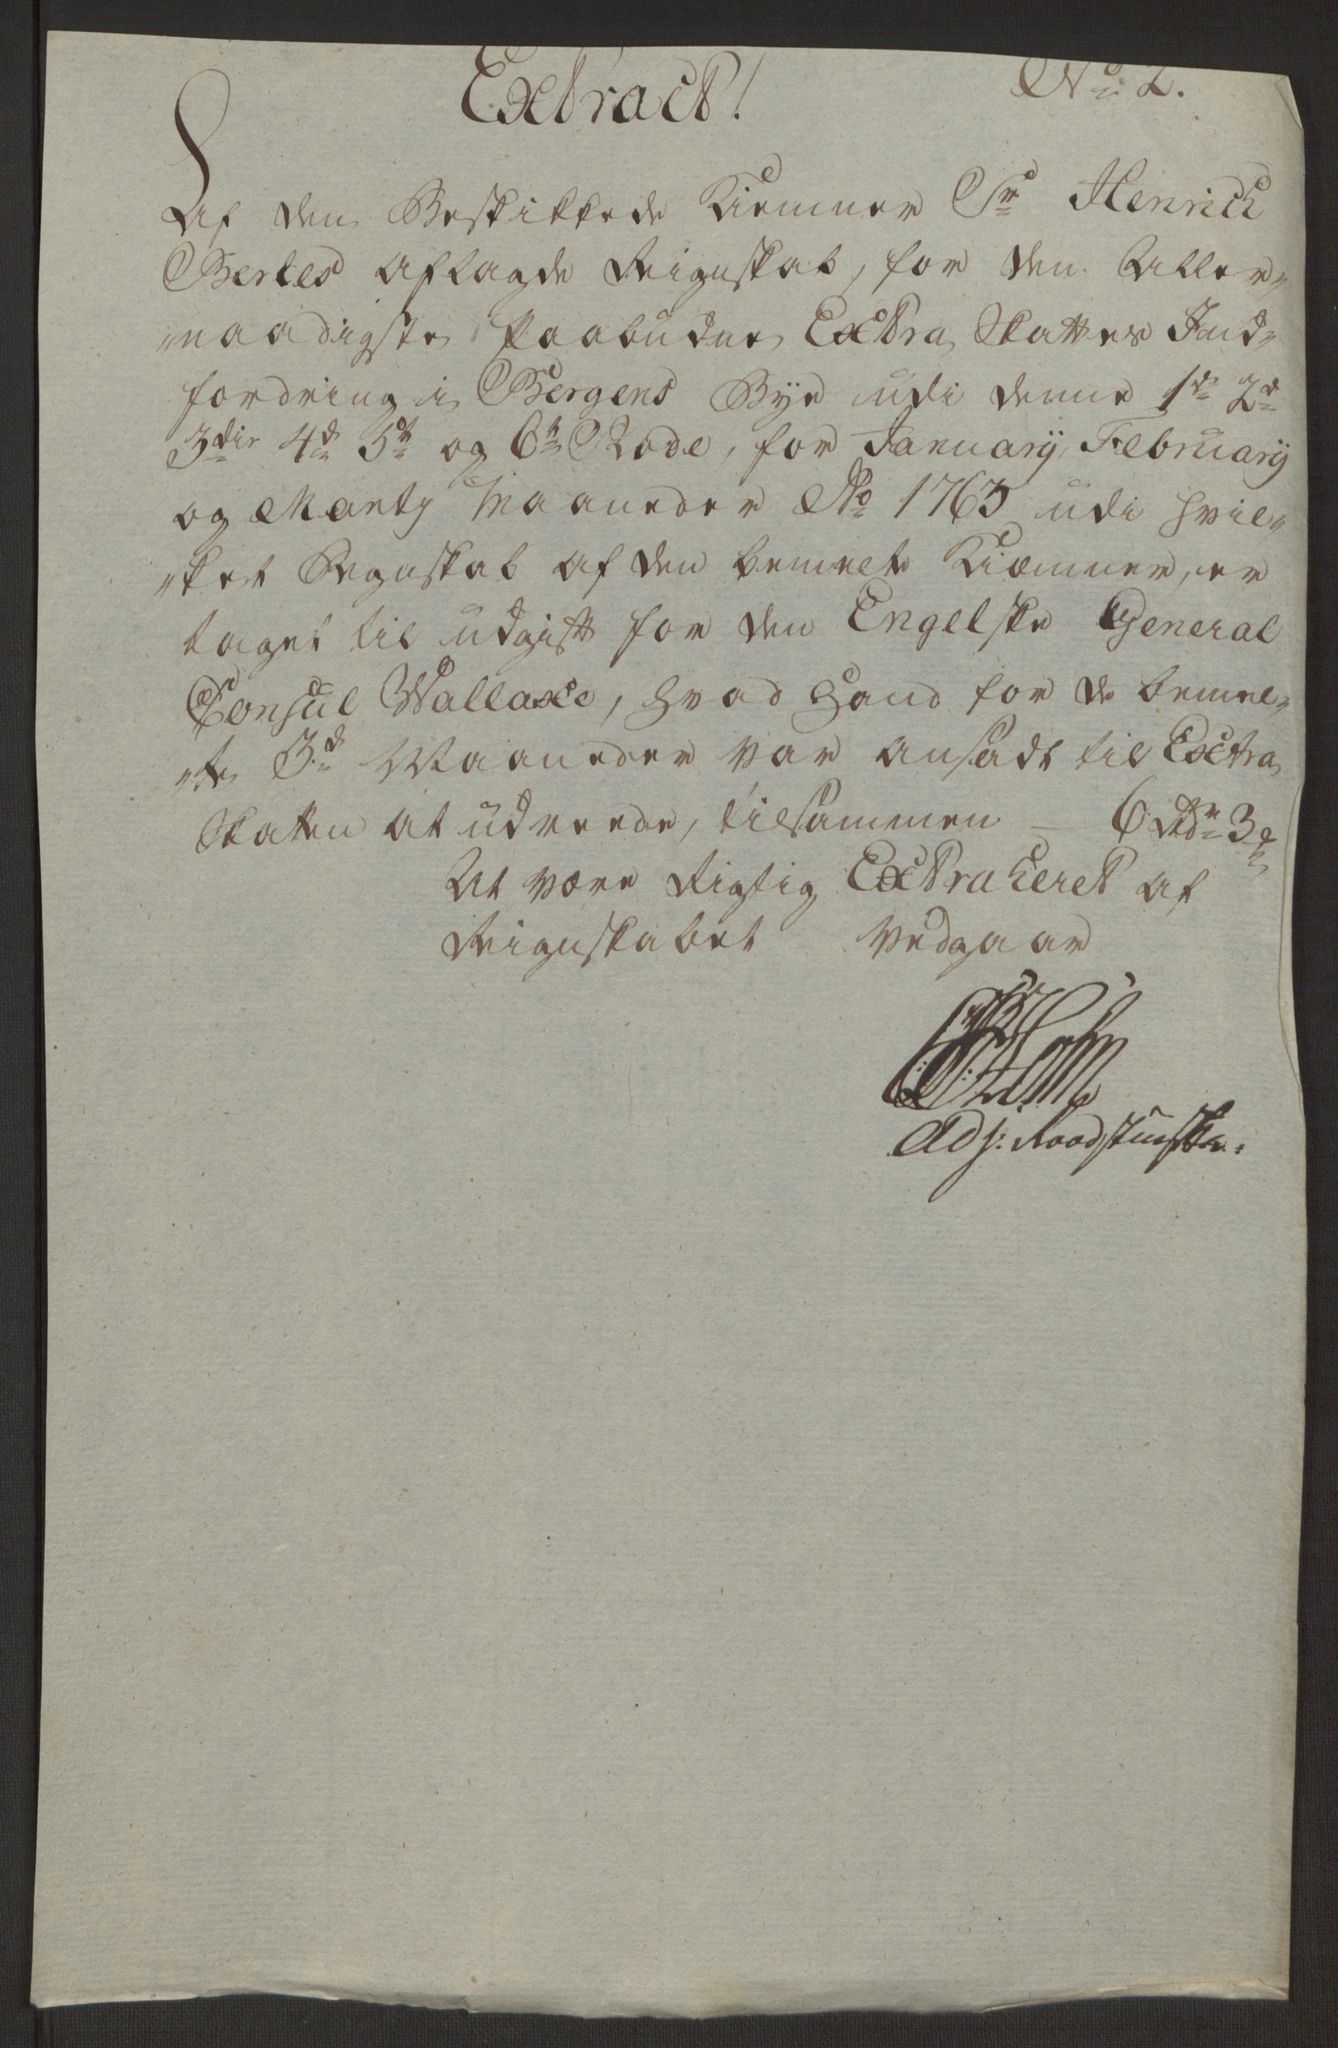 Extract!
No: 2.
Af den Beskikkede Kiemner Sr Henrich
Gerles aflagde Reignskab, for den Aller„
„naadigste Paabudne Extra Skattes Ind„
fordring i Bergens Bye udi denne 1te 2den
3die 4de 5te og 6te Rode, for January, February
og Marty Maaneder Ao 1763 udi hvil„
„ket Regnskab af den bemelte Kiæmner, er
taget til udgift for den Engelske General
Consul Wallace, hvad Hand for de bemel„
„te 3de Maaneder var ansadt til Extra
Skatten at udreede, tilsammen — 6 Rdr 3
At være Rigtig Extraheret af
Reignskabet Vedgaar
Holm
Adj: Raadstueskr: